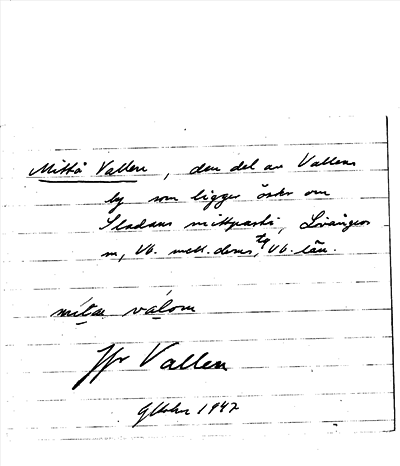 Mittå Vallen, den del av Vallens
by som ligger öster om
Sladans mittparti, Lövångers
Vb. Vb. län.
mita válom
Jfr Vallen
1947